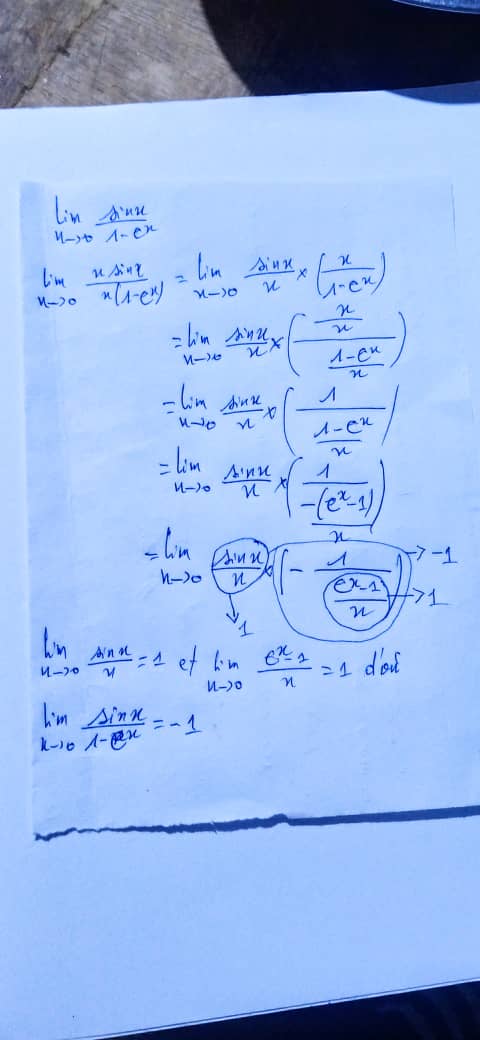 lim x→0 sinx/(1-e^x)
lim x→0 (x sinx)/(x(1-e^x)) = lim x→0 sinx/x × (x/(1-e^x))
= lim x→0 sinx/x × ((x/x)/((1-e^x)/x))
= lim x→0 sinx/x × (1/((1-e^x)/x))
= lim x→0 sinx/x × (1/(-(e^x-1)/x))
= lim x→0 sinx/x × (-1/((e^x-1)/x)) → -1
→ 1
↓ 1
lim x→0 sinx/x = 1 et lim x→0 (e^x-1)/x = 1 d'où
lim x→0 sinx/(1-e^x) = -1